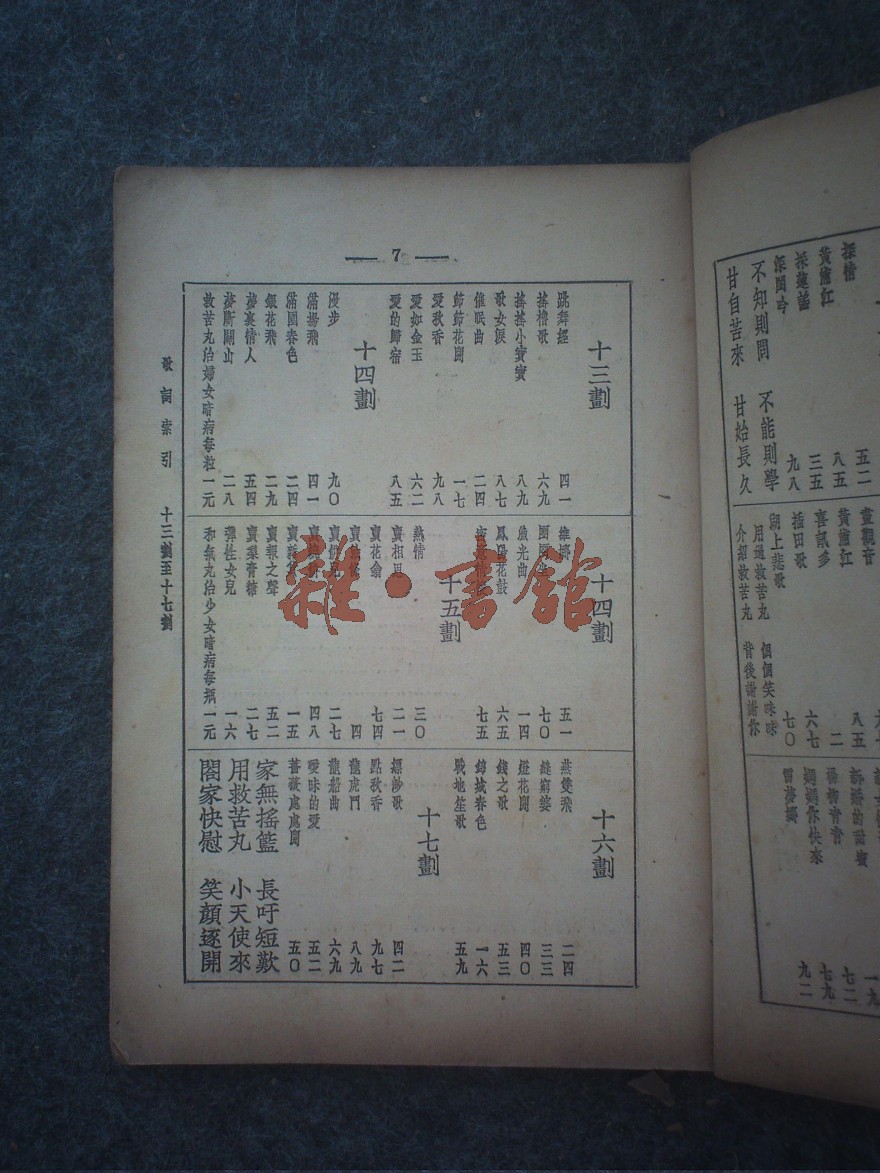 7
歌詞索引 十三劃至十七劃
十三劃
跳舞經 四一
搖櫓歌 六九
搖搖小寶寶 八九
歌女淚 八七
催眠曲 二四
節節花開 一七
愛秋香 九八
愛如金玉 六二
愛的歸宿 八五
十四劃
漫步 九〇
滿場飛 四一
滿園春色 二四
銀花飛 二九
夢裏情人 五四
夢斷關山 二八
救苦丸治婦女暗病每粒一元
十四劃
五一
七〇
漁光曲 一四
鳳陽花鼓 六五
七五
十五劃
熱情 三〇
賣相思 二一
賣花翁 七四
四
二七
四八
一五
賣報之聲 五二
賣梨膏糖 二七
彈性女兒 一六
和氣丸治少女暗病每瓶一元
十六劃
燕雙飛 二四
縫窮婆 三三
燈花開 四〇
錢之歌 五三
錦城春色 一六
戰地笙歌 五九
十七劃
縹緲歌 四二
點秋香 九七
龍虎鬥 八九
龍船曲 六九
曖昧的愛 五二
薔薇處處開 五〇
家無搖籃 長吁短歎
用救苦丸 小天使來
閤家快慰 笑顏逐開
雜·書館
探情 五二
黃浦江 八五
採蓮謠 三五
深閨吟 九八
不知則問 不能則學
甘自苦來 甘始長久
畫觀音
黃浦江 八五
喜訊多 二
插田歌 六七
湖上悲歌 七〇
用過救苦丸 個個笑咪咪
介紹救苦丸 背後謝謝你
新婚的甜蜜 一九
楊柳青青 七二
媽媽你快來 七九
雷夢娜 九二